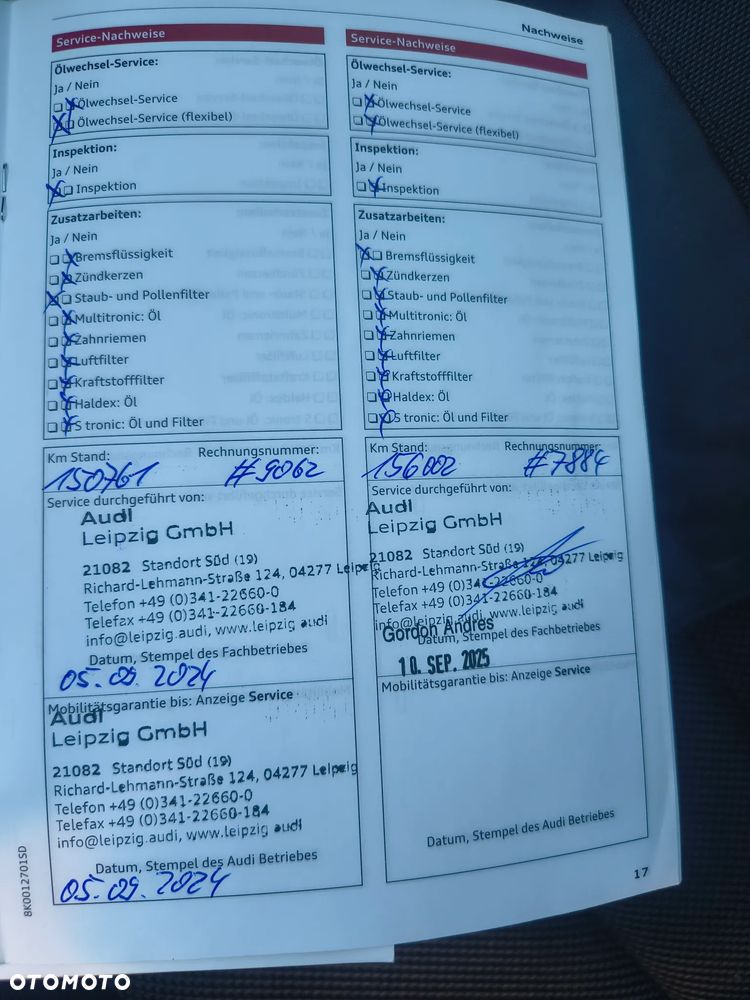 Nachweise
Service-Nachweise
Ölwechsel-Service:
Ja / Nein
Ölwechsel-Service
Ölwechsel-Service (flexibel)
Inspektion:
Ja / Nein
Inspektion
Zusatzarbeiten:
Ja / Nein
Bremsflüssigkeit
Zündkerzen
Staub- und Pollenfilter
Multitronic: Öl
Zahnriemen
Luftfilter
Kraftstofffilter
Haldex: Öl
S tronic: Öl und Filter
Km Stand: Rechnungsnummer:
150761 #9062
Service durchgeführt von:
Audi
Leipzig GmbH
21082 Standort Süd (19)
Richard-Lehmann-Straße 124, 04277 Leipzig
Telefon +49 (0)341-22660-0
Telefax +49 (0)341-22660-184
info@leipzig.audi, www.leipzig.audi
Datum, Stempel des Fachbetriebes
05.09.2024
Mobilitätsgarantie bis: Anzeige Service
Audi
Leipzig GmbH
21082 Standort Süd (19)
Richard-Lehmann-Straße 124, 04277 Leipzig
Telefon +49 (0)341-22660-0
Telefax +49 (0)341-22660-184
info@leipzig.audi, www.leipzig.audi
Datum, Stempel des Audi Betriebes
05.09.2024
8K0012701SD
Service-Nachweise
Ölwechsel-Service:
Ja / Nein
Ölwechsel-Service
Ölwechsel-Service (flexibel)
Inspektion:
Ja / Nein
Inspektion
Zusatzarbeiten:
Ja / Nein
Bremsflüssigkeit
Zündkerzen
Staub- und Pollenfilter
Multitronic: Öl
Zahnriemen
Luftfilter
Kraftstofffilter
Haldex: Öl
S tronic: Öl und Filter
Km Stand: Rechnungsnummer:
156002 #7884
Service durchgeführt von:
Audi
Leipzig GmbH
21082 Standort Süd (19)
Richard-Lehmann-Straße 124, 04277 Leipzig
Telefon +49 (0)341-22660-0
Telefax +49 (0)341-22660-184
info@leipzig.audi, www.leipzig.audi
Gordon Andres
Datum, Stempel des Fachbetriebes
10. SEP. 2025
Mobilitätsgarantie bis: Anzeige Service
Datum, Stempel des Audi Betriebes
17
OTOMOTO